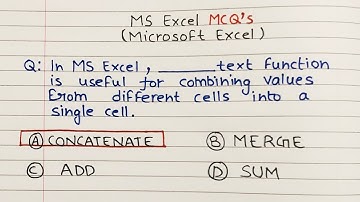 MS Excel MCQ's
(Microsoft Excel)
Q: In MS Excel, ______ text function
is useful for combining values
from different cells into a
single cell.
Ⓐ CONCATENATE Ⓑ MERGE
Ⓒ ADD Ⓓ SUM